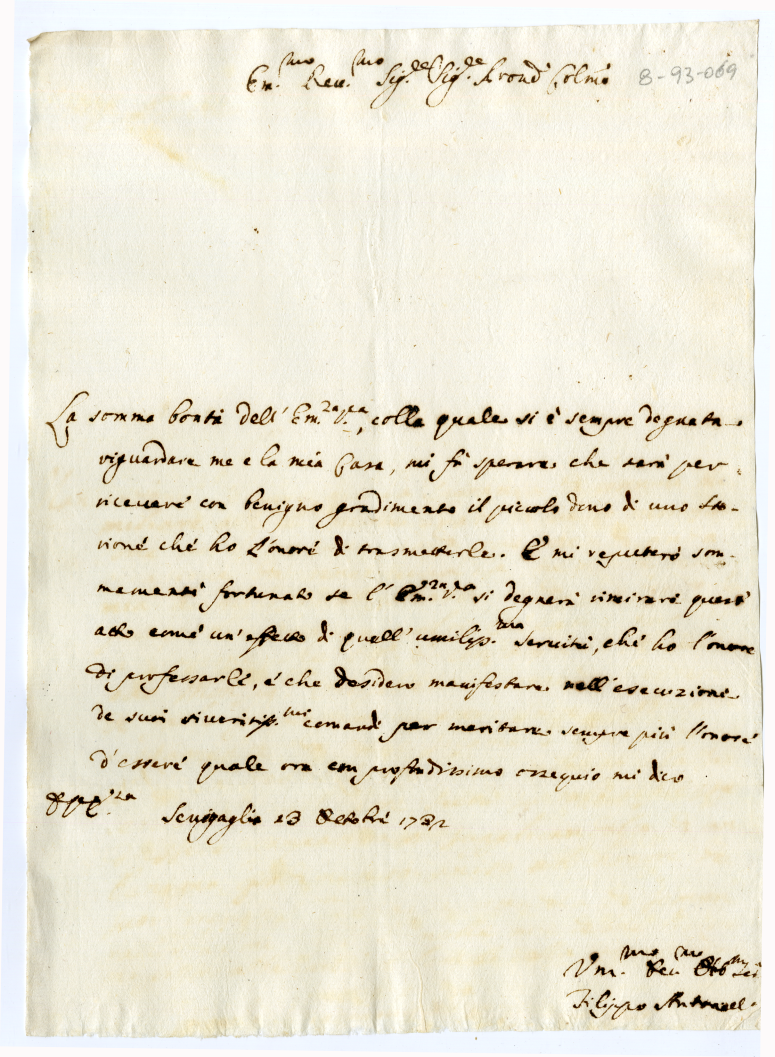 Em.mo Reu.mo Sig.re Sig.re Prone Colmo 8-93-069
La somma bontà dell' Em.za V.ra, colla quale si è sempre degnata
riguardare me e la mia Casa, mi fà sperare che sarà per
riceuere con benigno gradimento il piccolo dono di uno Sto-
rione che ho l'onore di trasmetterle. E mi reputerò som-
mamente fortunato se l' Em.za V.ra si degnerà rimirare quest'
atto come un' effetto di quell' umiliss.ma seruitù, che ho l'onore
di professarle, e che desidero manifestare nell' esecuzione
de suoi riueritiss.mi comandi per meritare sempre più l'onore
d'essere quale ora con profondissimo ossequio mi dico
Senigaglia 23 Ottobre
Vm.mo Deu.mo Obb.mo
Filippo